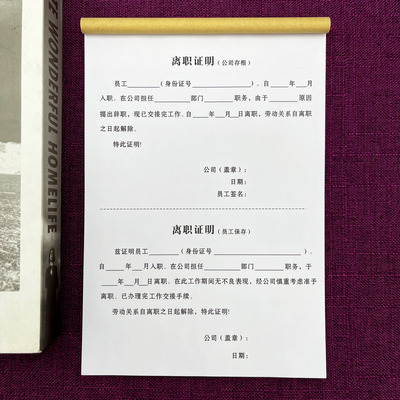 离职证明（公司存根）
员工________（身份证号________________）。自_____年___月
入职。在公司担任________部门________职务，由于________原因
提出辞职，现已交接完工作。自_____年___月___日离职，劳动关系自离职
之日起解除。
特此证明！
公司（盖章）：
日期：
员工签名：
离职证明（员工保存）
兹证明员工________（身份证号________________）。
自_____年___月入职。在公司担任________部门________职务，于
_____年___月___日离职。在此工作期间无不良表现，经公司慎重考虑准予
离职。已办理完工作交接手续。
劳动关系自离职之日起解除，特此证明！
公司（盖章）：
日期：
E WONDERFUL HOMELIFE